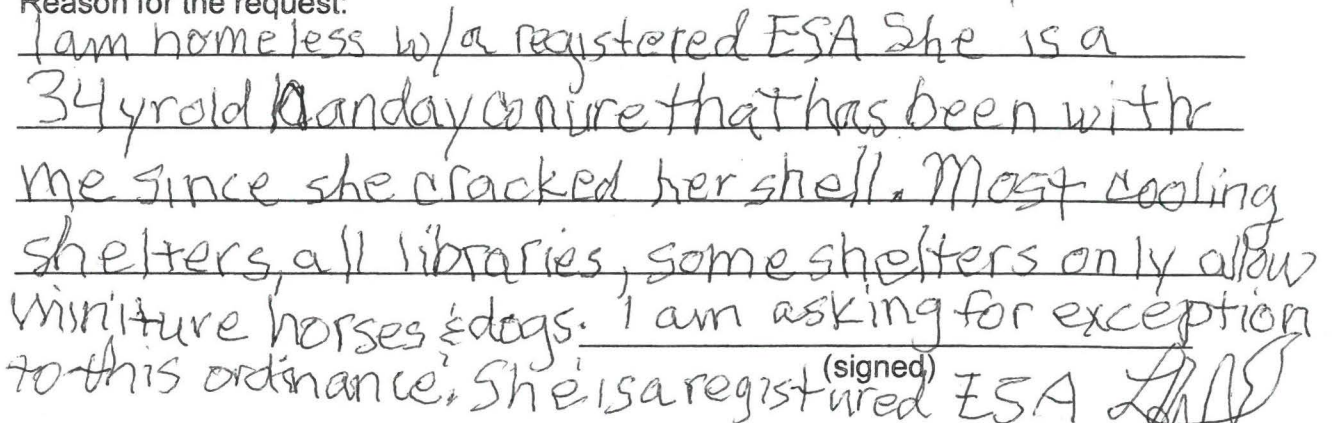 Reason for the request:
I am homeless w/a registered ESA She is a
34 yr old Nanday conure that has been with
me since she cracked her shell. Most cooling
shelters, all libraries, some shelters only allow
miniture horses & dogs. I am asking for exception
to this ordinance. She is a registured ESA
(signed)